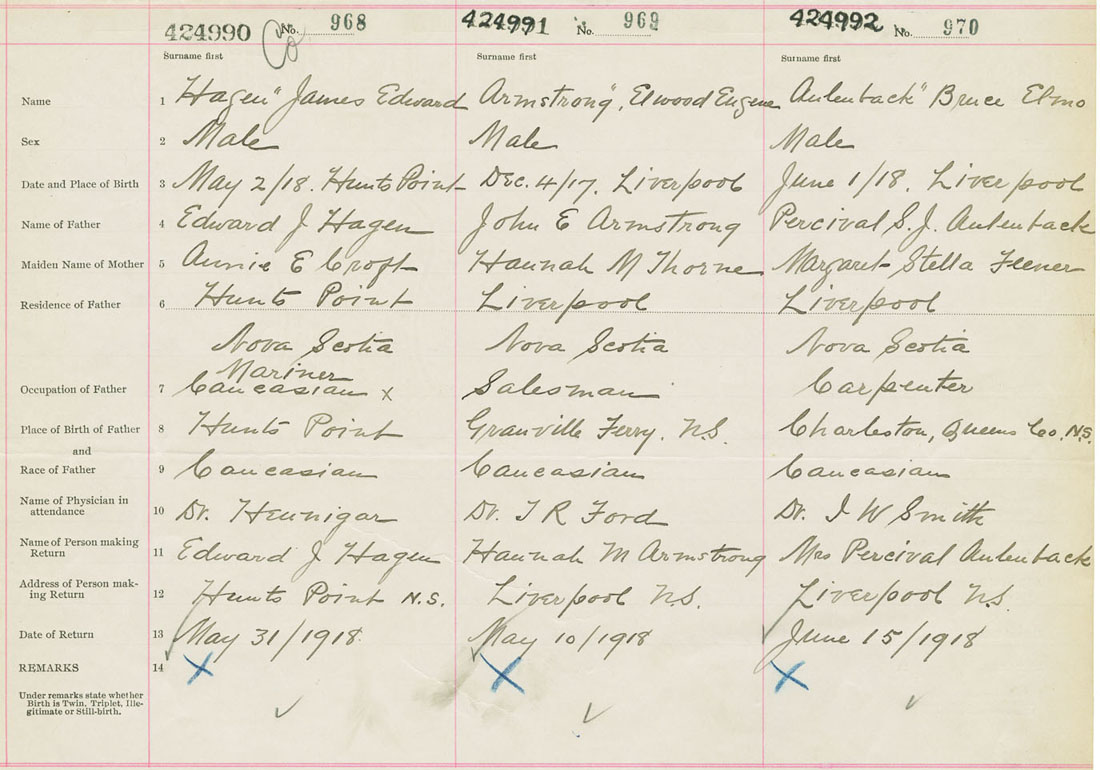 424990 No. 968 424991 No. 969 424992 No. 970
Surname first Surname first Surname first
Name 1 Hagen" James Edward Armstrong", Elwood Eugene Aulenback" Bruce Elmo
Sex 2 Male Male Male
Date and Place of Birth 3 May 2/18. Hunts Point Dec. 4/17. Liverpool June 1/18. Liverpool
Name of Father 4 Edward J Hagen John E Armstrong Percival S. J. Aulenback
Maiden Name of Mother 5 Annie E Croft Hannah M Thorne Margaret Stella Feener
Residence of Father 6 Hunts Point Liverpool Liverpool
Nova Scotia Nova Scotia Nova Scotia
Mariner
Occupation of Father 7 Caucasian x Salesman Carpenter
Place of Birth of Father 8 Hunts Point Granville Ferry. N.S. Charleston, Queens Co. N.S.
and
Race of Father 9 Caucasian Caucasian Caucasian
Name of Physician in
attendance 10 Dr. Hennigar Dr. T R Ford Dr. I W Smith
Name of Person making
Return 11 Edward J Hagen Hannah M Armstrong Mrs Percival Aulenback
Address of Person mak-
ing Return 12 Hunts Point N.S. Liverpool N.S. Liverpool N.S.
Date of Return 13 May 31/1918 May 10/1918 June 15/1918
REMARKS 14 X X X
Under remarks state whether
Birth is Twin, Triplet, Ille-
gitimate or Still-birth.